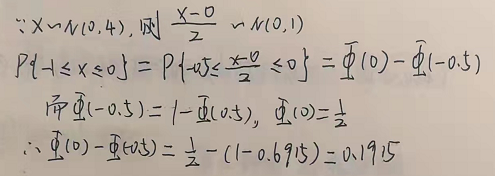 ∵X~N(0,4),则 (X-0)/2 ~N(0,1)
P{-1≤x≤0}=P{-0.5≤(x-0)/2≤0}=Φ(0)-Φ(-0.5)
而Φ(-0.5)=1-Φ(0.5), Φ(0)=1/2
∴Φ(0)-Φ(-0.5)=1/2-(1-0.6915)=0.1915